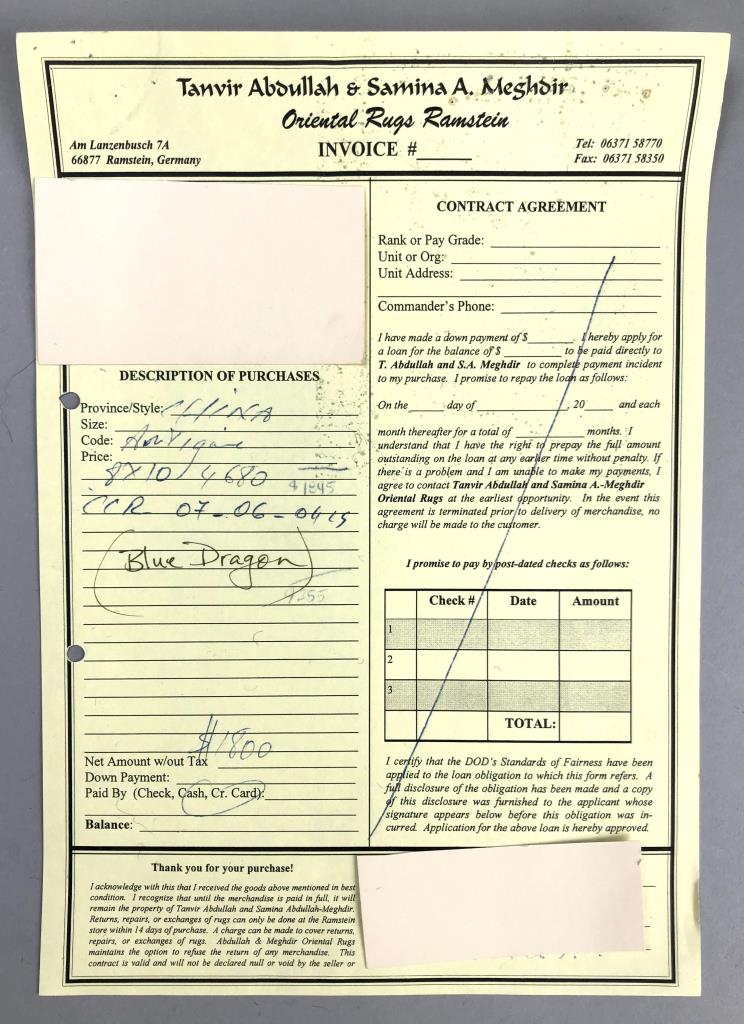 Tanvir Abdullah & Samina A. Meghdir
Oriental Rugs Ramstein
Am Lanzenbusch 7A
66877 Ramstein, Germany
INVOICE #
Tel: 06371 58770
Fax: 06371 58350
DESCRIPTION OF PURCHASES
Province/Style: CHINA
Size:
Code: Antique
Price:
8X10 4680
$1845
CCR 07-06-04
(Blue Dragon)
Net Amount w/out Tax $1800
Down Payment:
Paid By (Check, Cash, Cr. Card):
Balance:
CONTRACT AGREEMENT
Rank or Pay Grade:
Unit or Org:
Unit Address:
Commander's Phone:
I have made a down payment of $ . I hereby apply for
a loan for the balance of $ to be paid directly to
T. Abdullah and S.A. Meghdir to complete payment incident
to my purchase. I promise to repay the loan as follows:
On the day of , 20 and each
month thereafter for a total of months. I
understand that I have the right to prepay the full amount
outstanding on the loan at any earlier time without penalty. If
there is a problem and I am unable to make my payments, I
agree to contact Tanvir Abdullah and Samina A.-Meghdir
Oriental Rugs at the earliest opportunity. In the event this
agreement is terminated prior to delivery of merchandise, no
charge will be made to the customer.
I promise to pay by post-dated checks as follows:
Check # Date Amount
1
2
3
TOTAL:
I certify that the DOD's Standards of Fairness have been
applied to the loan obligation to which this form refers. A
full disclosure of the obligation has been made and a copy
of this disclosure was furnished to the applicant whose
signature appears below before this obligation was in-
curred. Application for the above loan is hereby approved.
Thank you for your purchase!
I acknowledge with this that I received the goods above mentioned in best
condition. I recognize that until the merchandise is paid in full, it will
remain the property of Tanvir Abdullah and Samina Abdullah-Meghdir.
Returns, repairs, or exchanges of rugs can only be done at the Ramstein
store within 14 days of purchase. A charge can be made to cover returns,
repairs, or exchanges of rugs. Abdullah & Meghdir Oriental Rugs
maintains the option to refuse the return of any merchandise. This
contract is valid and will not be declared null or void by the seller or